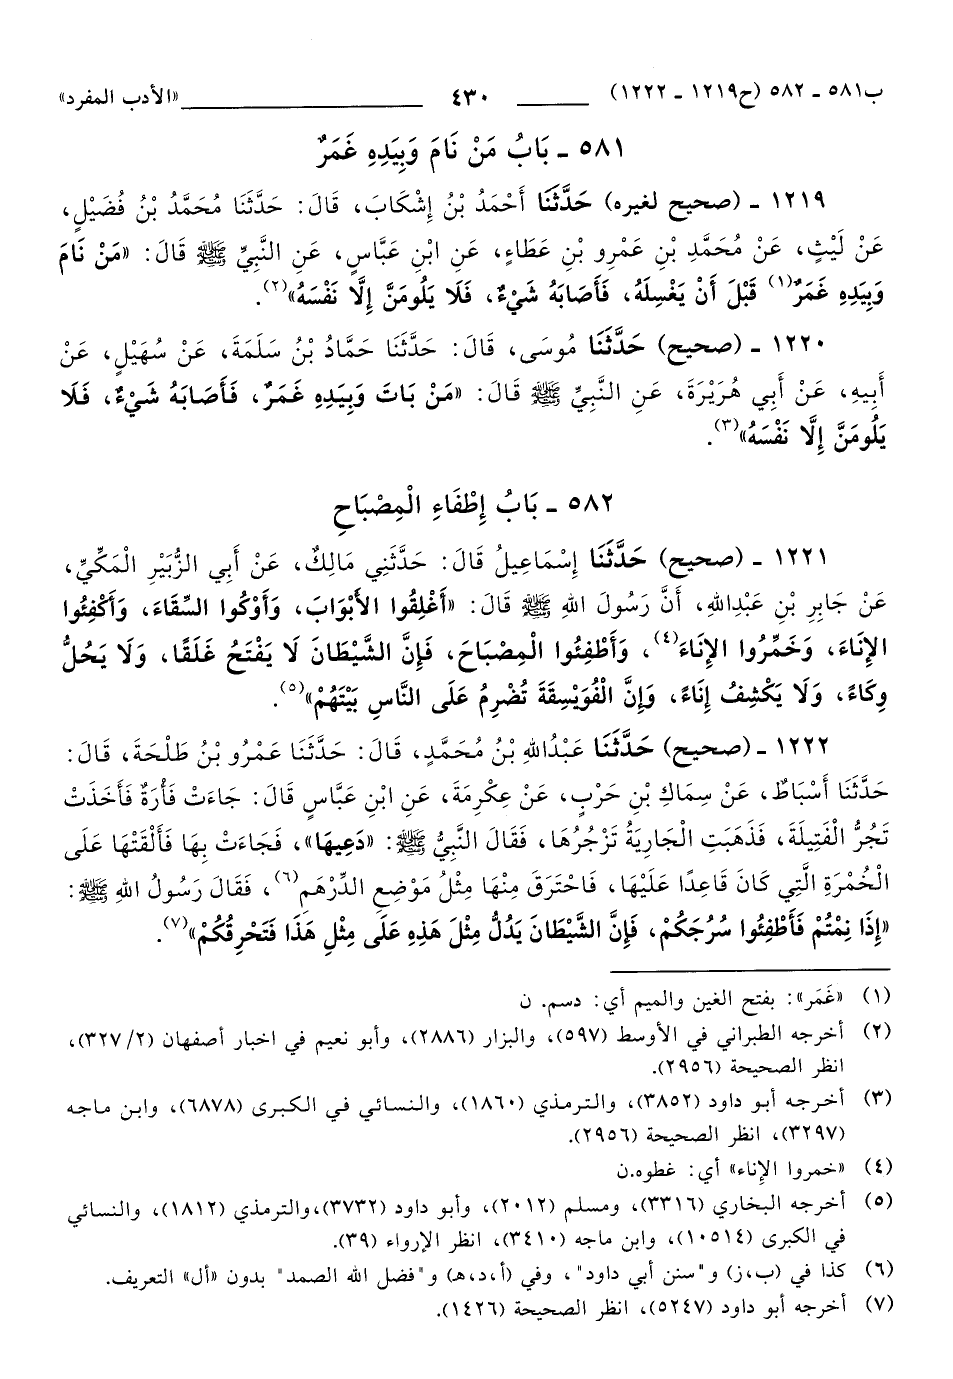 ب٥٨١ ـ ٥٨٢ (ح١٢١٩ ـ ١٢٢٢) ٤٣٠ «الأدب المفرد»
٥٨١ ـ بَابُ مَنْ نَامَ وَبِيَدِهِ غَمَرٌ
١٢١٩ ـ (صحيح لغيره) حَدَّثَنَا أَحْمَدُ بْنُ إِشْكَابَ، قَالَ: حَدَّثَنَا مُحَمَّدُ بْنُ فُضَيْلٍ،
عَنْ لَيْثٍ، عَنْ مُحَمَّدِ بْنِ عَمْرِو بْنِ عَطَاءٍ، عَنِ ابْنِ عَبَّاسٍ، عَنِ النَّبِيِّ ﷺ قَالَ: «مَنْ نَامَ
وَبِيَدِهِ غَمَرٌ(١) قَبْلَ أَنْ يَغْسِلَهُ، فَأَصَابَهُ شَيْءٌ، فَلَا يَلُومَنَّ إِلَّا نَفْسَهُ»(٢).
١٢٢٠ ـ (صحيح) حَدَّثَنَا مُوسَى، قَالَ: حَدَّثَنَا حَمَّادُ بْنُ سَلَمَةَ، عَنْ سُهَيْلٍ، عَنْ
أَبِيهِ، عَنْ أَبِي هُرَيْرَةَ، عَنِ النَّبِيِّ ﷺ قَالَ: «مَنْ بَاتَ وَبِيَدِهِ غَمَرٌ، فَأَصَابَهُ شَيْءٌ، فَلَا
يَلُومَنَّ إِلَّا نَفْسَهُ»(٣).
٥٨٢ ـ بَابُ إِطْفَاءِ الْمِصْبَاحِ
١٢٢١ ـ (صحيح) حَدَّثَنَا إِسْمَاعِيلُ قَالَ: حَدَّثَنِي مَالِكٌ، عَنْ أَبِي الزُّبَيْرِ الْمَكِّيِّ،
عَنْ جَابِرِ بْنِ عَبْدِاللهِ، أَنَّ رَسُولَ اللهِ ﷺ قَالَ: «أَغْلِقُوا الأَبْوَابَ، وَأَوْكُوا السِّقَاءَ، وَأَكْفِئُوا
الإِنَاءَ، وَخَمِّرُوا الإِنَاءَ(٤)، وَأَطْفِئُوا الْمِصْبَاحَ، فَإِنَّ الشَّيْطَانَ لَا يَفْتَحُ غَلَقًا، وَلَا يَحُلُّ
وِكَاءً، وَلَا يَكْشِفُ إِنَاءً، وَإِنَّ الْفُوَيْسِقَةَ تُضْرِمُ عَلَى النَّاسِ بَيْتَهُمْ»(٥).
١٢٢٢ ـ (صحيح) حَدَّثَنَا عَبْدُاللهِ بْنُ مُحَمَّدٍ، قَالَ: حَدَّثَنَا عَمْرُو بْنُ طَلْحَةَ، قَالَ:
حَدَّثَنَا أَسْبَاطٌ، عَنْ سِمَاكِ بْنِ حَرْبٍ، عَنْ عِكْرِمَةَ، عَنِ ابْنِ عَبَّاسٍ قَالَ: جَاءَتْ فَأْرَةٌ فَأَخَذَتْ
تَجُرُّ الْفَتِيلَةَ، فَذَهَبَتِ الْجَارِيَةُ تَزْجُرُهَا، فَقَالَ النَّبِيُّ ﷺ: «دَعِيهَا»، فَجَاءَتْ بِهَا فَأَلْقَتْهَا عَلَى
الْخُمْرَةِ الَّتِي كَانَ قَاعِدًا عَلَيْهَا، فَاحْتَرَقَ مِنْهَا مِثْلُ مَوْضِعِ الدِّرْهَمِ(٦)، فَقَالَ رَسُولُ اللهِ ﷺ:
«إِذَا نِمْتُمْ فَأَطْفِئُوا سُرُجَكُمْ، فَإِنَّ الشَّيْطَانَ يَدُلُّ مِثْلَ هَذِهِ عَلَى مِثْلِ هَذَا فَتَحْرِقُكُمْ»(٧).
(١) «غَمَر»: بفتح الغين والميم أي: دسم. ن
(٢) أخرجه الطبراني في الأوسط (٥٩٧)، والبزار (٢٨٨٦)، وأبو نعيم في اخبار أصفهان (٣٢٧/٢)،
انظر الصحيحة (٢٩٥٦).
(٣) أخرجه أبو داود (٣٨٥٢)، والترمذي (١٨٦٠)، والنسائي في الكبرى (٦٨٧٨)، وابن ماجه
(٣٢٩٧)، انظر الصحيحة (٢٩٥٦).
(٤) «خمروا الإناء» أي: غطوه.ن
(٥) أخرجه البخاري (٣٣١٦)، ومسلم (٢٠١٢)، وأبو داود (٣٧٣٢)،والترمذي (١٨١٢)، والنسائي
في الكبرى (١٠٥١٤)، وابن ماجه (٣٤١٠)، انظر الإرواء (٣٩).
(٦) كذا في (ب،ز) و"سنن أبي داود"، وفي (أ،د،هـ) و"فضل الله الصمد" بدون «أل» التعريف.
(٧) أخرجه أبو داود (٥٢٤٧)، انظر الصحيحة (١٤٢٦).